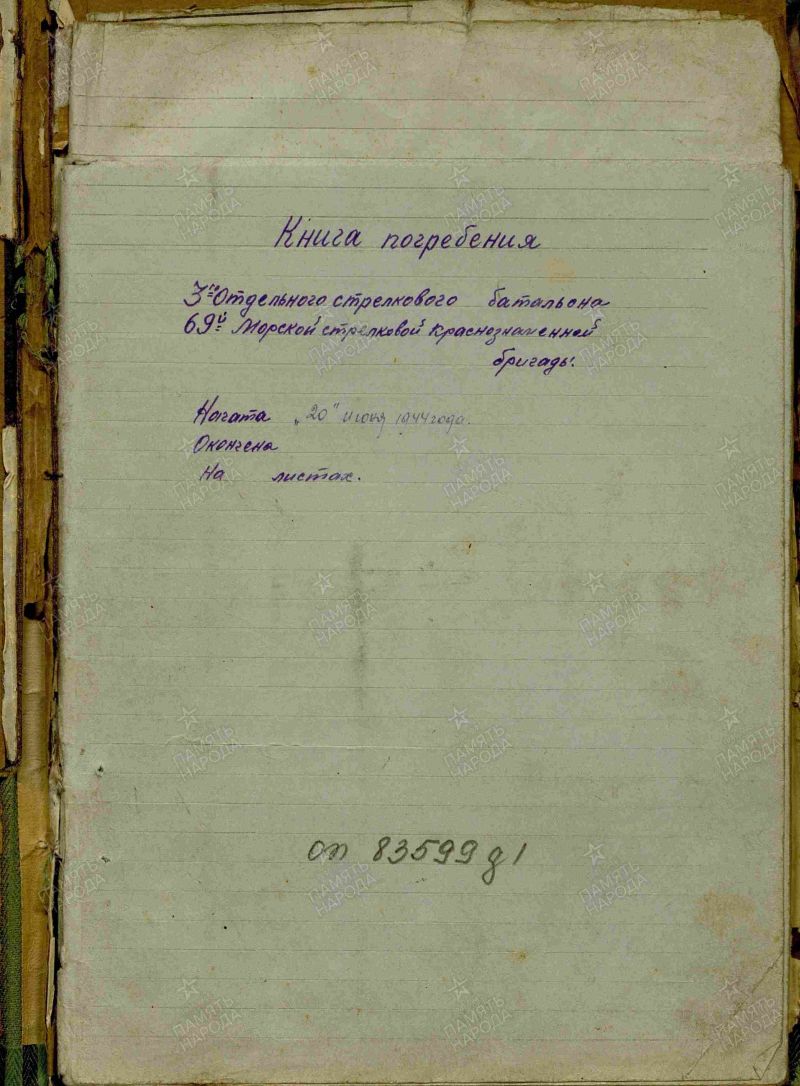 Книга погребения
3го Отдельного стрелкового батальона
69й Морской стрелковой Краснознаменной
бригады.
Начата „20" июня 1944 года.
Окончена
На листах.
оп 83599 д 1
ПАМЯТЬ
НАРОДА